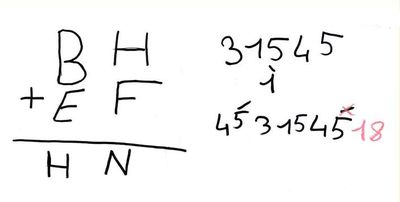 B H
+ E F
H N
31545
1
453154518